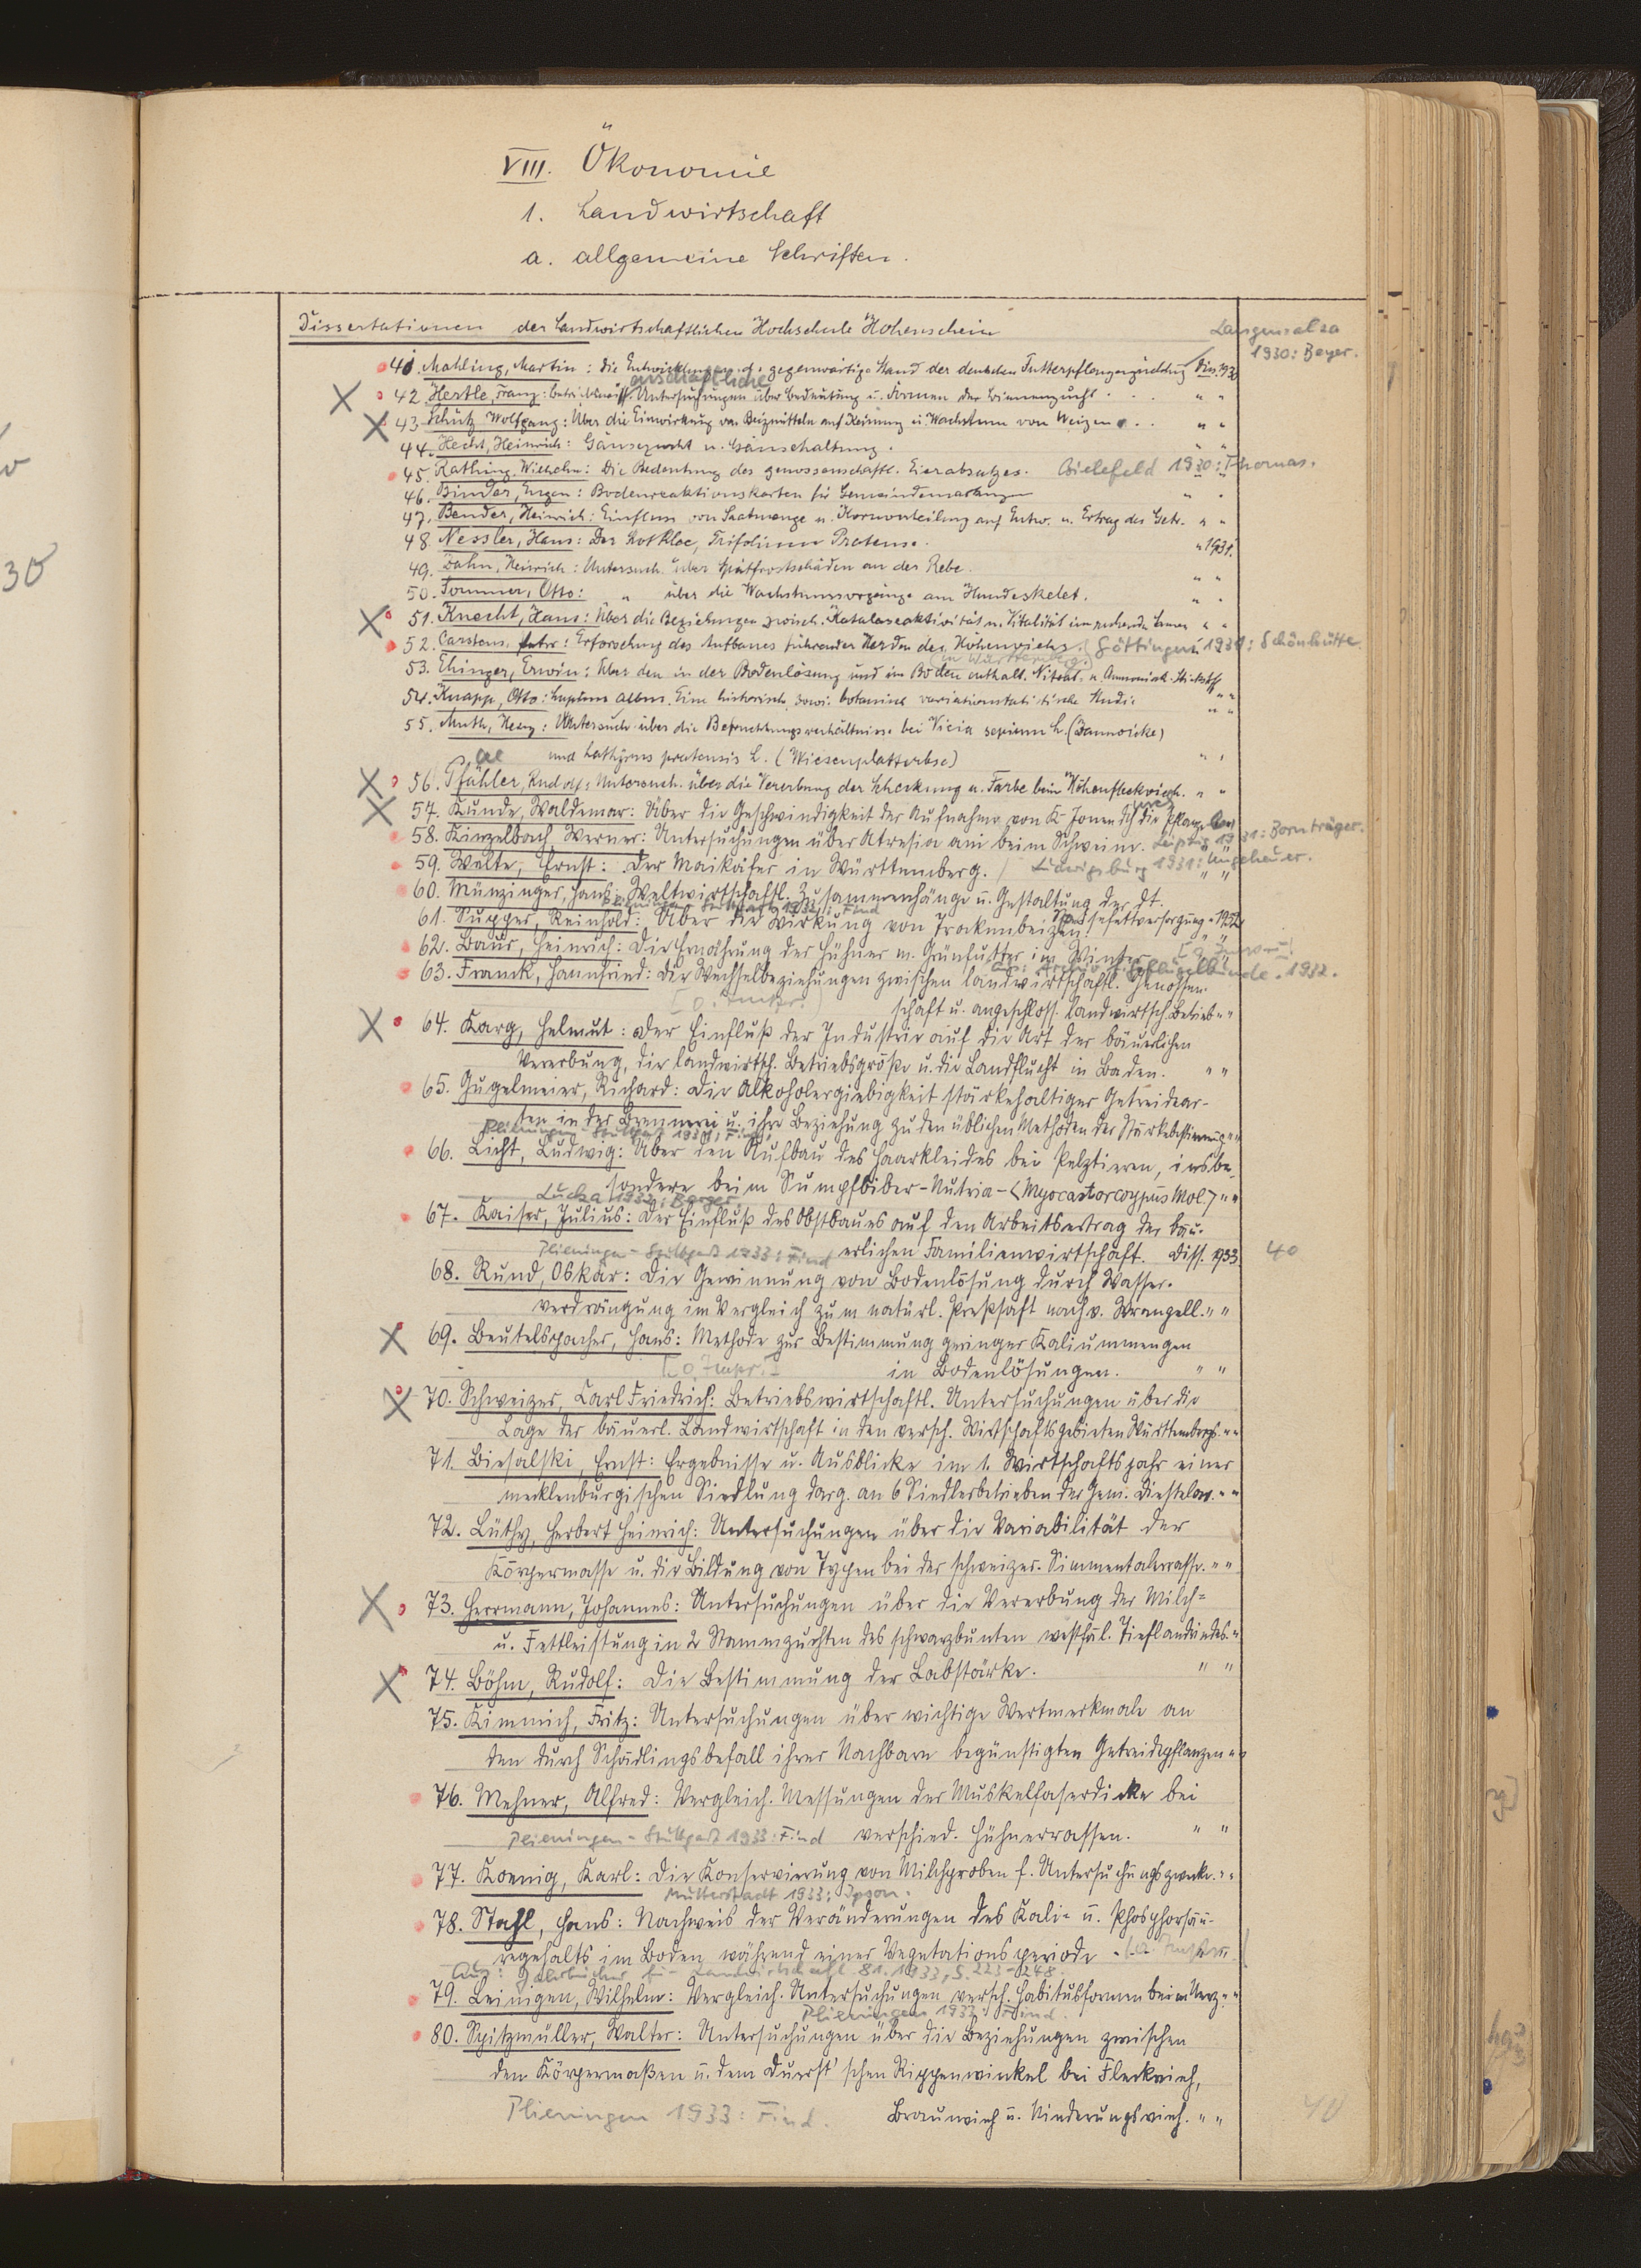 VIII. Ökonomie
1. Landwirtschaft
a. allgemeine Schriften.
Dissertationen der Landwirtschaftlichen Hochschule Hohenheim
Langensalza
1930: Beyer.
41. Mahling, Martin: Die Entwicklung u. d. gegenwärtige Stand der deutschen Futterpflanzenzüchtg Diss. 1930
42. Hertle, Franz: Betriebswirtschaftliche Untersuchungen über Bedeutung u. Formen der Rinnenzucht . . . " "
43. Schütz Wolfgang: Über die Einwirkung von Beizmitteln auf Keimung u. Wachstum von Weizen . . . " "
44. Hecht, Heinrich: Gänsezucht u. Gänsehaltung. " "
45. Rathing, Wilhelm: Die Bedeutung des genossenschaftl. Eierabsatzes. Bielefeld 1930: Thomas.
46. Binder, Eugen: Bodenreaktionskarten für Gemeindemarkungen " "
47. Bender, Heinrich: Einfluss von Saatmenge u. Kornverteilung auf Entw. u. Ertrag des Getr. " "
48. Nessler, Hans: Der Rotklee, Trifolium Pratense. " 1931.
49. Zahn, Heinrich: Untersuch. über Spätfrostschäden an der Rebe. " "
50. Sommer, Otto: " über die Wachstumsvorgänge am Hundeskelet. " "
51. Knecht, Hans: Über die Beziehungen zwisch. Katalaseaktivität u. Vitalität im ruhenden Samen " "
52. Carstens, Peter: Erforschung des Aufbaues führender Herden des Höhenviehs (in Württemberg.) Göttingen 1931: Schönhütte.
53. Ehinger, Erwin: Über den in der Bodenlösung und im Boden enthalt. Nitrat- u. Ammoniak-Stickstoff " "
54. Knapp, Otto: Lupinus albus. Eine historisch sowie botanisch variationsstatistische Studie " "
55. Muth, Henry: Untersuch. über die Befruchtungsverhältnisse bei Vicia sepium L. (Zaunwicke)
und Lathyrus pratensis L. (Wiesenplatterbse) " "
56. Pfähler, Rudolf: Untersuch. über die Vererbung der Scheckung u. Farbe beim Höhenfleckvieh. " "
57. Kunde, Waldemar: Über die Geschwindigkeit der Aufnahme von K-Jonen durch die Pflanze
58. Kinzelbach, Werner: Untersuchungen über Atresia ani beim Schwein. Leipzig 1931: Bornträger.
59. Welte, Ernst: Der Maikäfer in Württemberg. / Ludwigsburg 1931: Ungeheuer.
60. Münzinger, Hans: Weltwirtschaftl. Zusammenhänge u. Gestaltung der dt.
Plieningen-Stuttgart 1932: Find Speisefettversorgung " 1932
61. Supper, Reinhold: Über die Wirkung von Trockenbeizen. " "
62. Baur, Heinrich: Die Ernährung der Hühner m. Grünfutter im Winter
Aus: Archiv f. Geflügelkunde. 1932.
63. Franck, Hannfried: Die Wechselbeziehungen zwischen landwirtschaftl. Genossen-
[o. Impr.] schaft u. angeschloss. landwirtsch. Betrieb " "
64. Karg, Helmut: Der Einfluß der Industrie auf die Art der bäuerlichen
Vererbung, die landwirtsch. Betriebsgröße u. die Landflucht in Baden. " "
65. Gugelmeier, Richard: Die Alkoholergiebigkeit stärkehaltiger Getreidear-
ten in der Brennerei u. ihre Beziehung zu den üblichen Methoden der Stärkebestimmung " "
Plieningen-Stuttgart 1931: Find
66. Licht, Ludwig: Über den Aufbau des Haarkleides bei Pelztieren, insbe-
sondere beim Sumpfbiber-Nutria-(Myocastorcoypus Mol.) " "
Lucka 1933: Berger
67. Kaiser, Julius: Der Einfluß des Obstbaues auf den Arbeitsertrag der bäu-
Plieningen-Stuttgart 1933: Find erlichen Familienwirtschaft. Diss. 1933 40
68. Rund, Oskar: Die Gewinnung von Bodenlösung durch Wasser-
verdrängung im Vergleich zum natürl. Preßsaft nach v. Wrangell. " "
69. Beutelspacher, Hans: Methode zur Bestimmung geringer Kaliummengen
[o. Impr.] in Bodenlösungen. " "
70. Schweizer, Carl Friedrich: Betriebswirtschaftl. Untersuchungen über die
Lage der bäuerl. Landwirtschaft in den versch. Wirtschaftsgebieten Württembergs. " "
71. Biesalski, Ernst: Ergebnisse u. Ausblicke im 1. Wirtschaftsjahr einer
mecklenburgischen Siedlung darg. an 6 Siedlerbetrieben der Gem. Diestelow. " "
72. Lüthy, Herbert Heinrich: Untersuchungen über die Variabilität der
Körpermasse u. die Bildung von Typen bei der schweizer. Simmentalerrasse. " "
73. Herrmann, Johannes: Untersuchungen über die Vererbung der Milch-
u. Fettleistung in 2 Stammzuchten des schwarzbunten westfäl. Tieflandrindes. "
74. Böhm, Rudolf: Die Bestimmung der Labstärke. " "
75. Kimmich, Fritz: Untersuchungen über wichtige Wertmerkmale an
den durch Schädlingsbefall ihrer Nachbarn begünstigten Getreidepflanzen " "
76. Mehner, Alfred: Vergleich. Messungen der Muskelfaserdicke bei
Plieningen-Stuttgart 1933: Find verschied. Hühnerrassen. " "
77. Koenig, Karl: Die Konservierung von Milchproben f. Untersuchungszwecke. " "
Mutterstadt 1933:
78. Stahl, Hans: Nachweis der Veränderungen des Kali- u. Phosphorsäu-
regehalts im Boden während einer Vegetationsperiode.
Aus: Jahrbücher für Landwirtschaft 81. 1933, S. 223-248.
79. Leinigen, Wilhelm: Vergleich. Untersuchungen versch. Habitusformen beim " "
Plieningen 1933: Find.
80. Spitzmüller, Walter: Untersuchungen über die Beziehungen zwischen
den Körpermaßen u. dem Duerst'schen Rippenwinkel bei Fleckvieh,
Plieningen 1933: Find. Braunvieh u. Niederungsvieh. " "
40